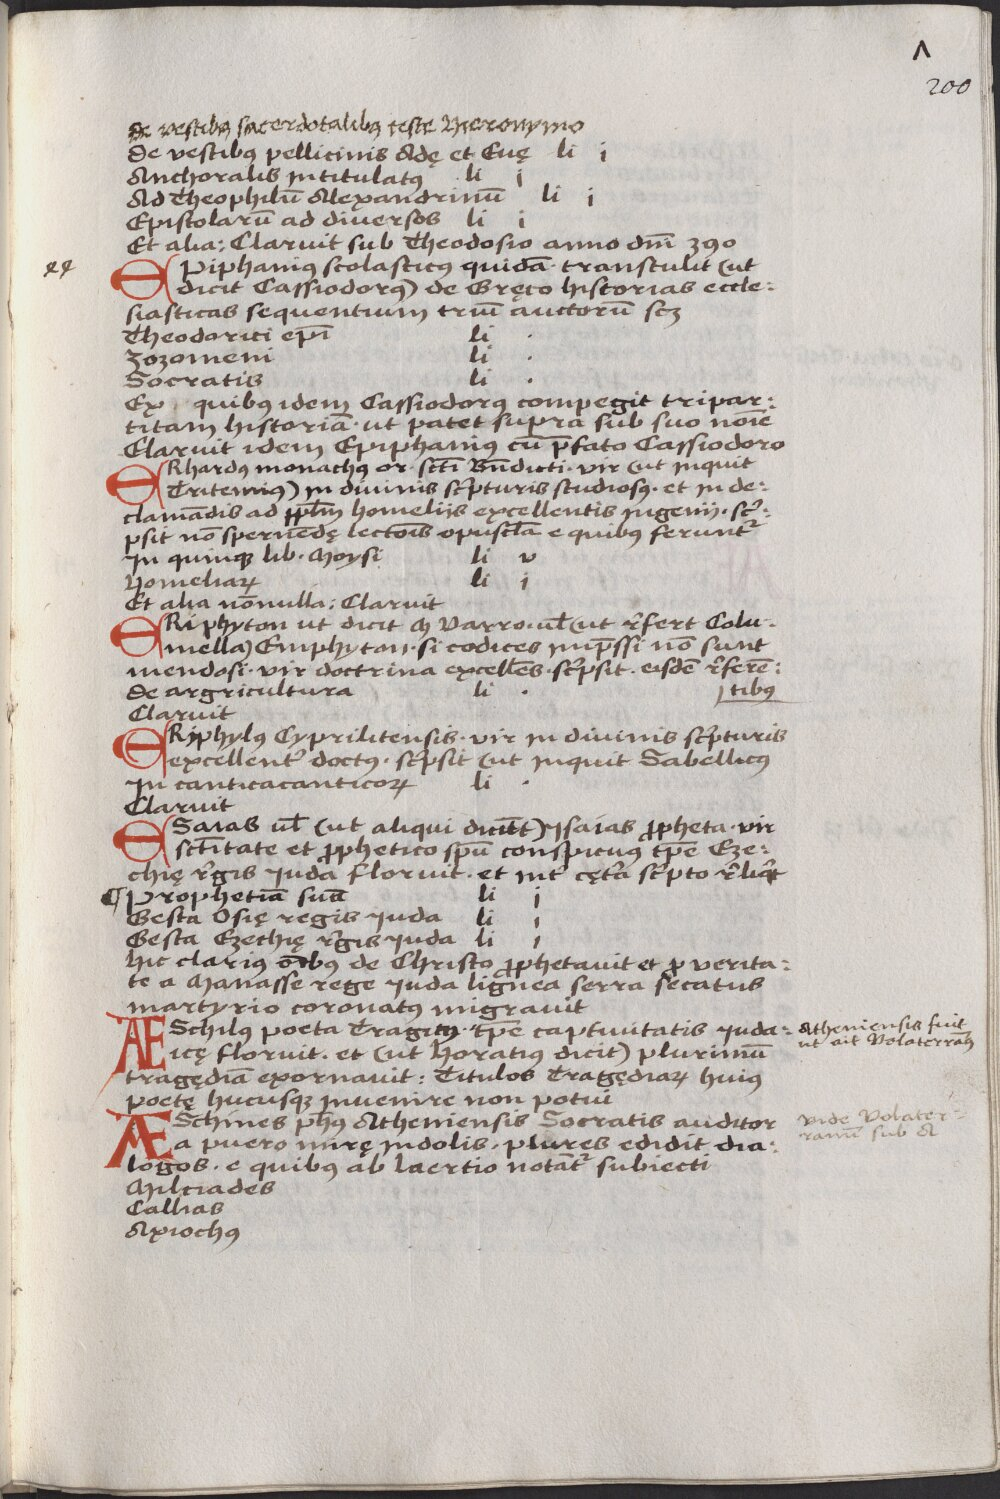 Λ
200
de vestibꝰ sacerdotalibꝰ teste Hieronymo
De vestibꝰ pellicinis Adę et Euę li j
Anchoralis intitulatꝰ li j
Ad Theophilū Alexandrinū li j
Epistolarū ad diuersos li j
Et alia: Claruit sub Theodosio anno dm̄ 390
EPiphaniꝰ scolasticꝰ quidā transtulit (ut
dicit Cassiodorꝰ) de Gręco historias eccle:
siasticas sequentium triū auctorū scꝫ
Theodorici ep̄i li .
Zozomeni li .
Socratis li .
Ex quibꝰ idem Cassiodorꝰ compegit tripar:
titam historiā. ut patet supra sub suo noīe
Claruit idem Epiphaniꝰ cū p̄fato Cassiodoro
ERhardꝰ monachꝰ or. sc̄ti Bn̄dicti. vir (ut inquit
Tritemiꝰ) in diuinis sc̄pturis studiosꝰ. et in de:
clamādis ad pp̄lm homelijs excellentis ingenij. sc̄:
psit nō spernēdę lectōis opuscl̄a e quibꝰ ferunt᷑
In quinqꝫ lib. Moysi li v
Homeliaꝝ li j
Et alia nōnulla: Claruit
ERiphyton ut dicit M Varro. ul̄ (ut r̄fert Colu:
mella) Emphyton. si codices imp̄ssi nō sunt
mendosi. vir doctrina excellēs. sc̄psit. eisdē r̄ferē:
tibꝰ
De argricultura li .
Claruit
ERiphylꝰ Cyprilitensis. vir in diuinis sc̄pturis
excellent᷑ doctꝰ. sc̄psit (ut inquit Sabellicꝰ
In canticacanticoꝝ li .
Claruit
ESaias ul̄ (ut aliqui dicūt) Ysaias ꝓpheta. vir
sc̄titate et ꝓphetico sp̄u conspicuꝰ tp̄e Eze:
chię r̄gis Iuda floruit. et int᷑ cęt᷑a sc̄pto r̄liq̄t
¶ Prophetiā suā li j
Gesta Osię regis Iuda li j
Gesta Ezechię r̄gis Iuda li j
hic clariꝰ oībꝰ de Christo ꝓphetauit et ꝓ verita:
te a Manasse rege Iuda lignea serra secatus
martyrio coronatꝰ migrauit
AESchilꝰ poeta Tragicꝰ. tp̄e captiuitatis Iuda:
icę floruit. et (ut Horatiꝰ dicit) plurimū
tragędiā exornauit: Titulos Tragędiaꝝ huiꝰ
poetę hucusqꝫ inuenire non potui
Atheniensis fuit
ut ait Volaterran9
AESchines ph̄ꝰ Atheniensis Socratis auditor
a puero mirę indolis. plures edidit dia:
logos. e quibꝰ ab laertio notāt᷑ subiecti
vide Volater:
ranū sub A
Milciades
Callias
Axiochꝰ